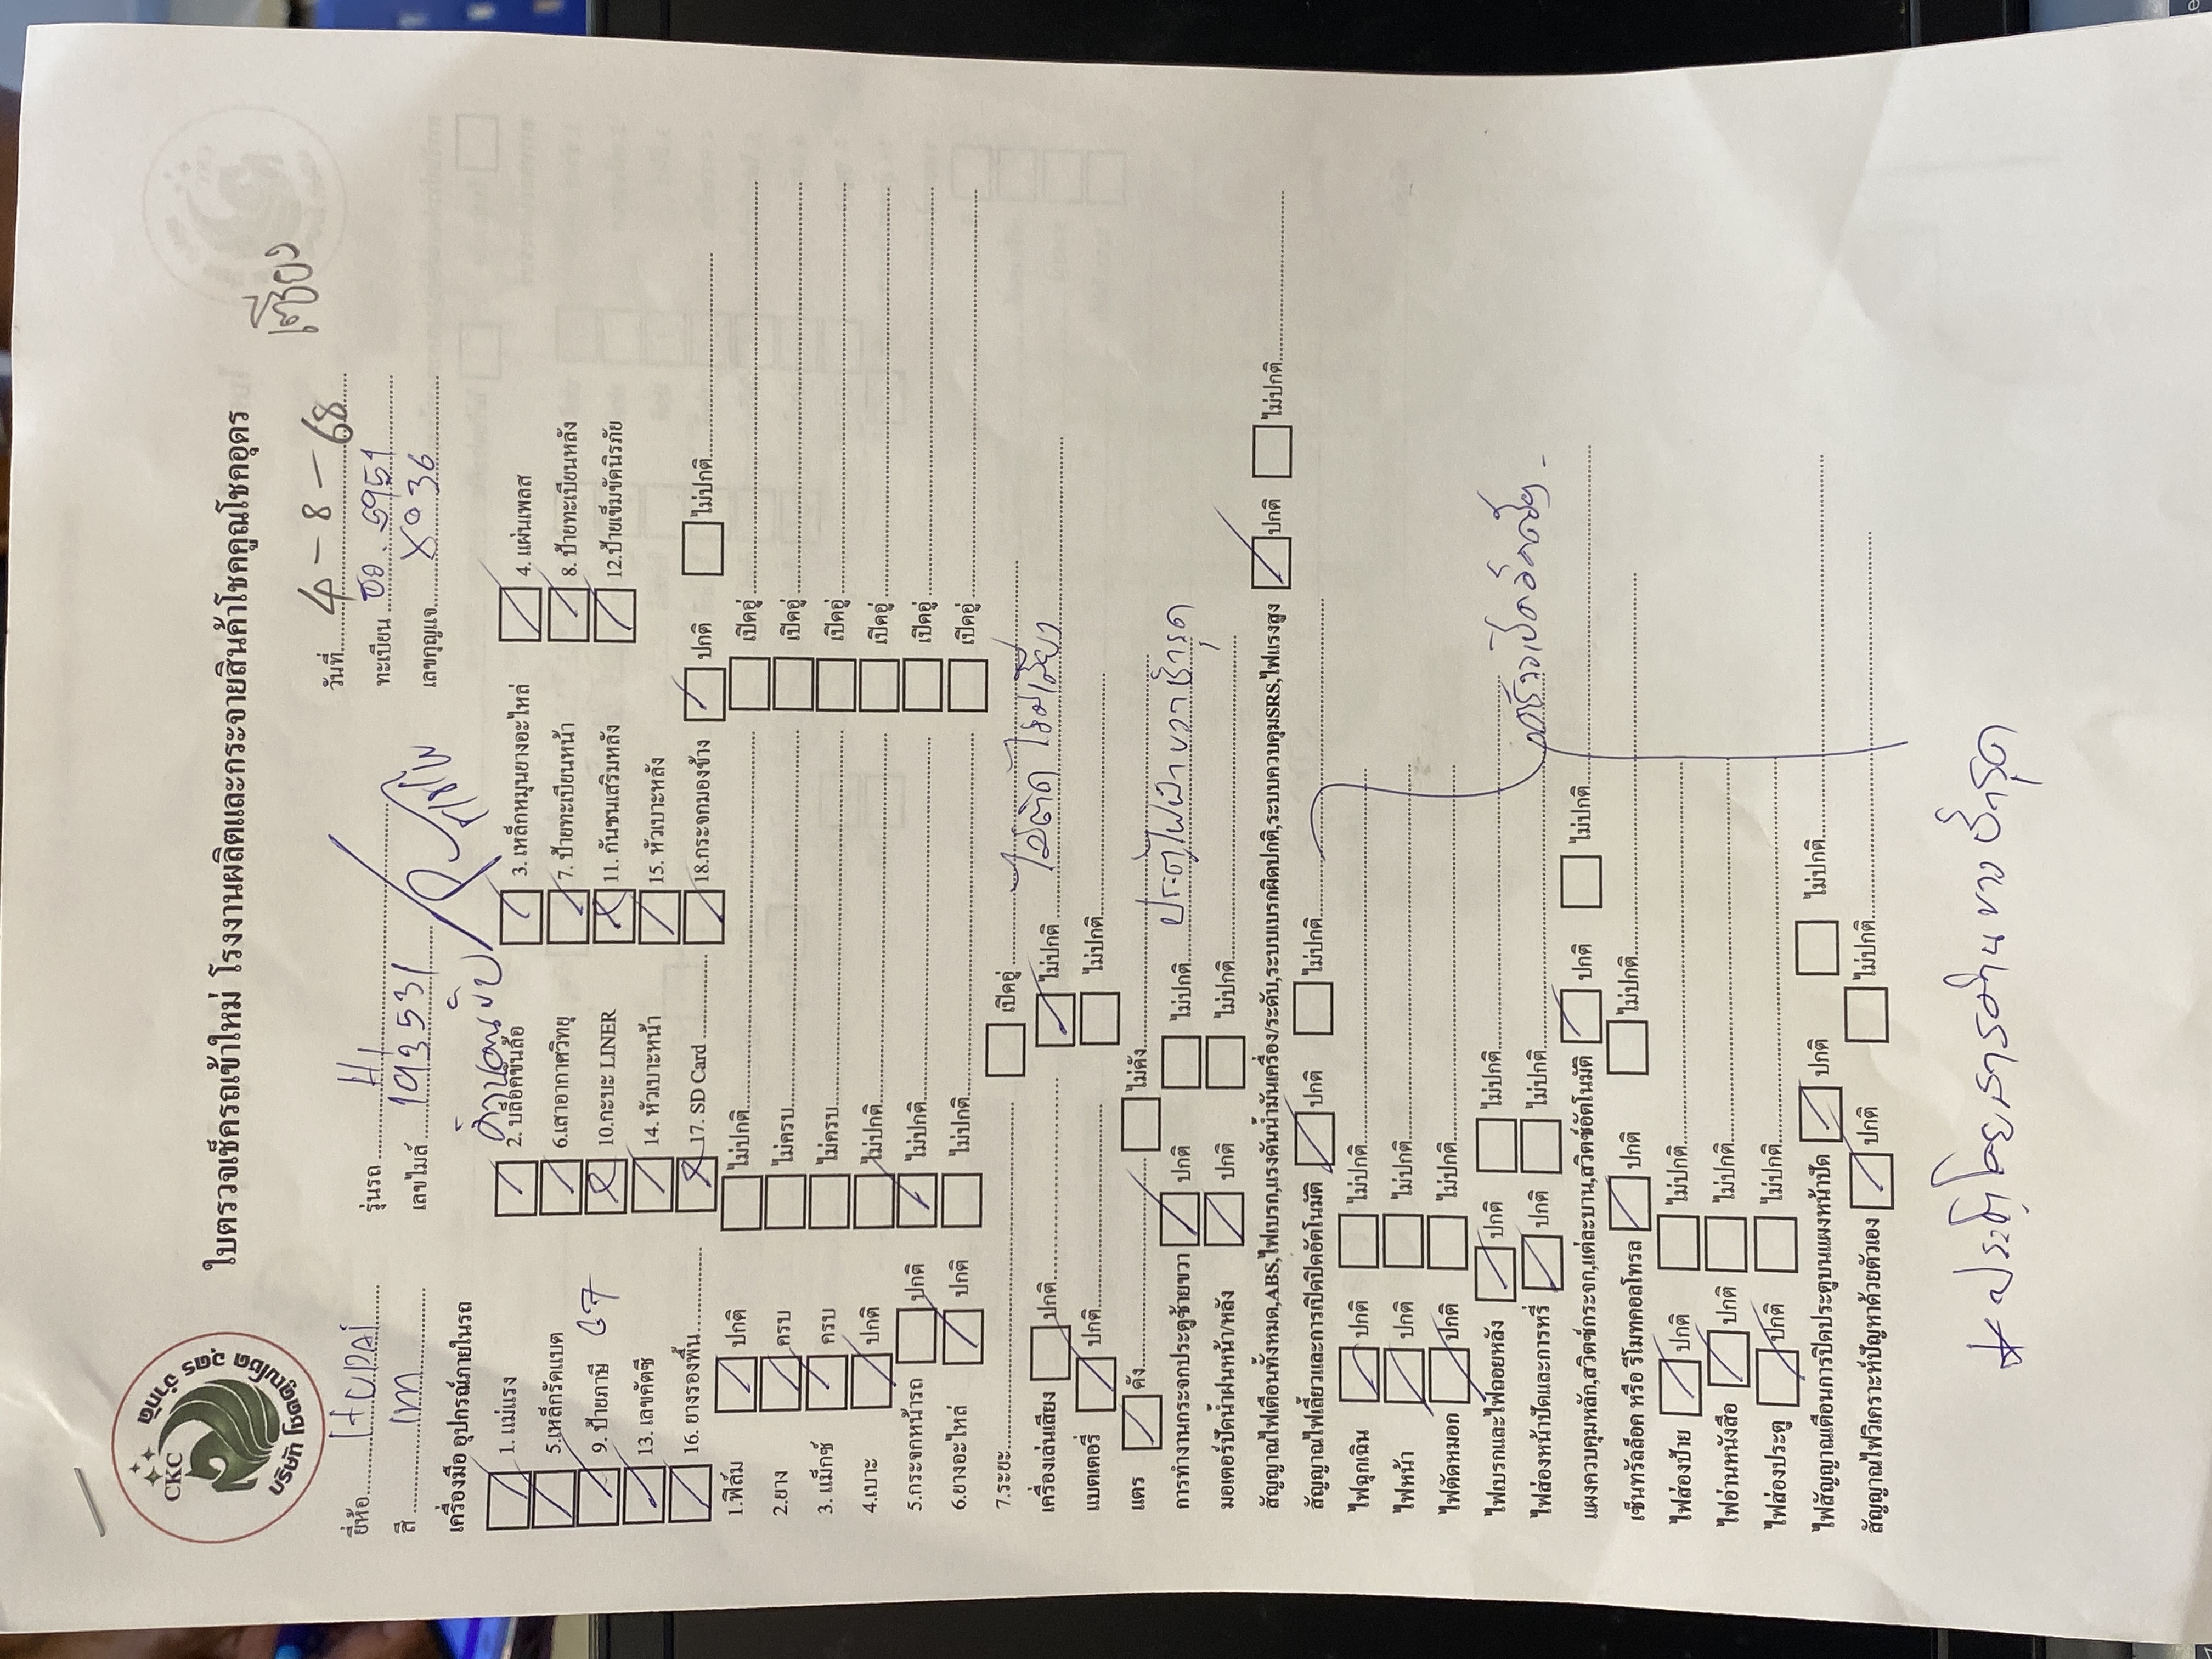 บริษัท โชคคูณโชค อุดร จำกัด
CKC
ใบตรวจเช็ครถเข้าใหม่ โรงงานผลิตและกระจายสินค้าโชคคูณโชคอุดร
ยี่ห้อ รุ่นรถ H1 วันที่ 4-8-68
สี เทา เลขไมล์ 193531 ทะเบียน
เลขกุญแจ X036
เครื่องมือ อุปกรณ์ภายในรถ
1. แม่แรง 2. บล็อคขันล้อ 3. เหล็กหมุนยางอะไหล่ 4. แผ่นเพลส
5.เหล็กรัดแบต 6.เสาอากาศวิทยุ 7. ป้ายทะเบียนหน้า 8. ป้ายทะเบียนหลัง
9. ป้ายภาษี 67 10.กะบะ LINER 11. กันชนเสริมหลัง 12.ป้ายเข็มขัดนิรภัย
13. เลขคัตซี 14. หัวเบาะหน้า 15. หัวเบาะหลัง
16. ยางรองพื้น 17. SD Card 18.กระจกมองข้าง ปกติ ไม่ปกติ
1.ฟิล์ม ปกติ ไม่ปกติ เปิดอู่
2.ยาง ครบ ไม่ครบ เปิดอู่
3. แม็กซ์ ครบ ไม่ครบ เปิดอู่
4.เบาะ ปกติ ไม่ปกติ เปิดอู่
5.กระจกหน้ารถ ปกติ ไม่ปกติ เปิดอู่
6.ยางอะไหล่ ปกติ ไม่ปกติ เปิดอู่
7.ระยะ เปิดอู่
เครื่องเล่นเสียง ปกติ ไม่ปกติ
แบตเตอรี่ ปกติ ไม่ปกติ
แตร ดัง ไม่ดัง
การทำงานกระจกประตูซ้ายขวา ปกติ ไม่ปกติ
มอเตอร์ปัดน้ำฝนหน้า/หลัง ปกติ ไม่ปกติ
สัญญาณไฟเตือนทั้งหมด,ABS,ไฟเบรก,แรงดันน้ำมันเครื่อง/ระดับ,ระบบเบรกผิดปกติ,ระบบควบคุมSRS,ไฟแรงสูง ปกติ ไม่ปกติ
สัญญาณไฟเลี้ยวและการเปิดปิดอัตโนมัติ ปกติ ไม่ปกติ
ไฟฉุกเฉิน ปกติ ไม่ปกติ
ไฟหน้า ปกติ ไม่ปกติ
ไฟตัดหมอก ปกติ ไม่ปกติ
ไฟเบรกและไฟถอยหลัง ปกติ ไม่ปกติ
ไฟส่องหน้าปัดและการหรี่ ปกติ ไม่ปกติ
แผงควบคุมหลัก,สวิตช์กระจก,แต่ละบาน,สวิตช์อัตโนมัติ ปกติ ไม่ปกติ
เซ็นทรัลล็อค หรือ รีโมทคอลโทรล ปกติ ไม่ปกติ
ไฟส่องป้าย ปกติ ไม่ปกติ
ไฟอ่านหนังสือ ปกติ ไม่ปกติ
ไฟส่องประตู ปกติ ไม่ปกติ
ไฟสัญญาณเตือนการปิดประตูบนแผงหน้าปัด ปกติ ไม่ปกติ
สัญญาณไฟวิเคราะห์ปัญหาด้วยตัวเอง ปกติ ไม่ปกติ
* ประตูโดยสารด้านขวาชำรุด